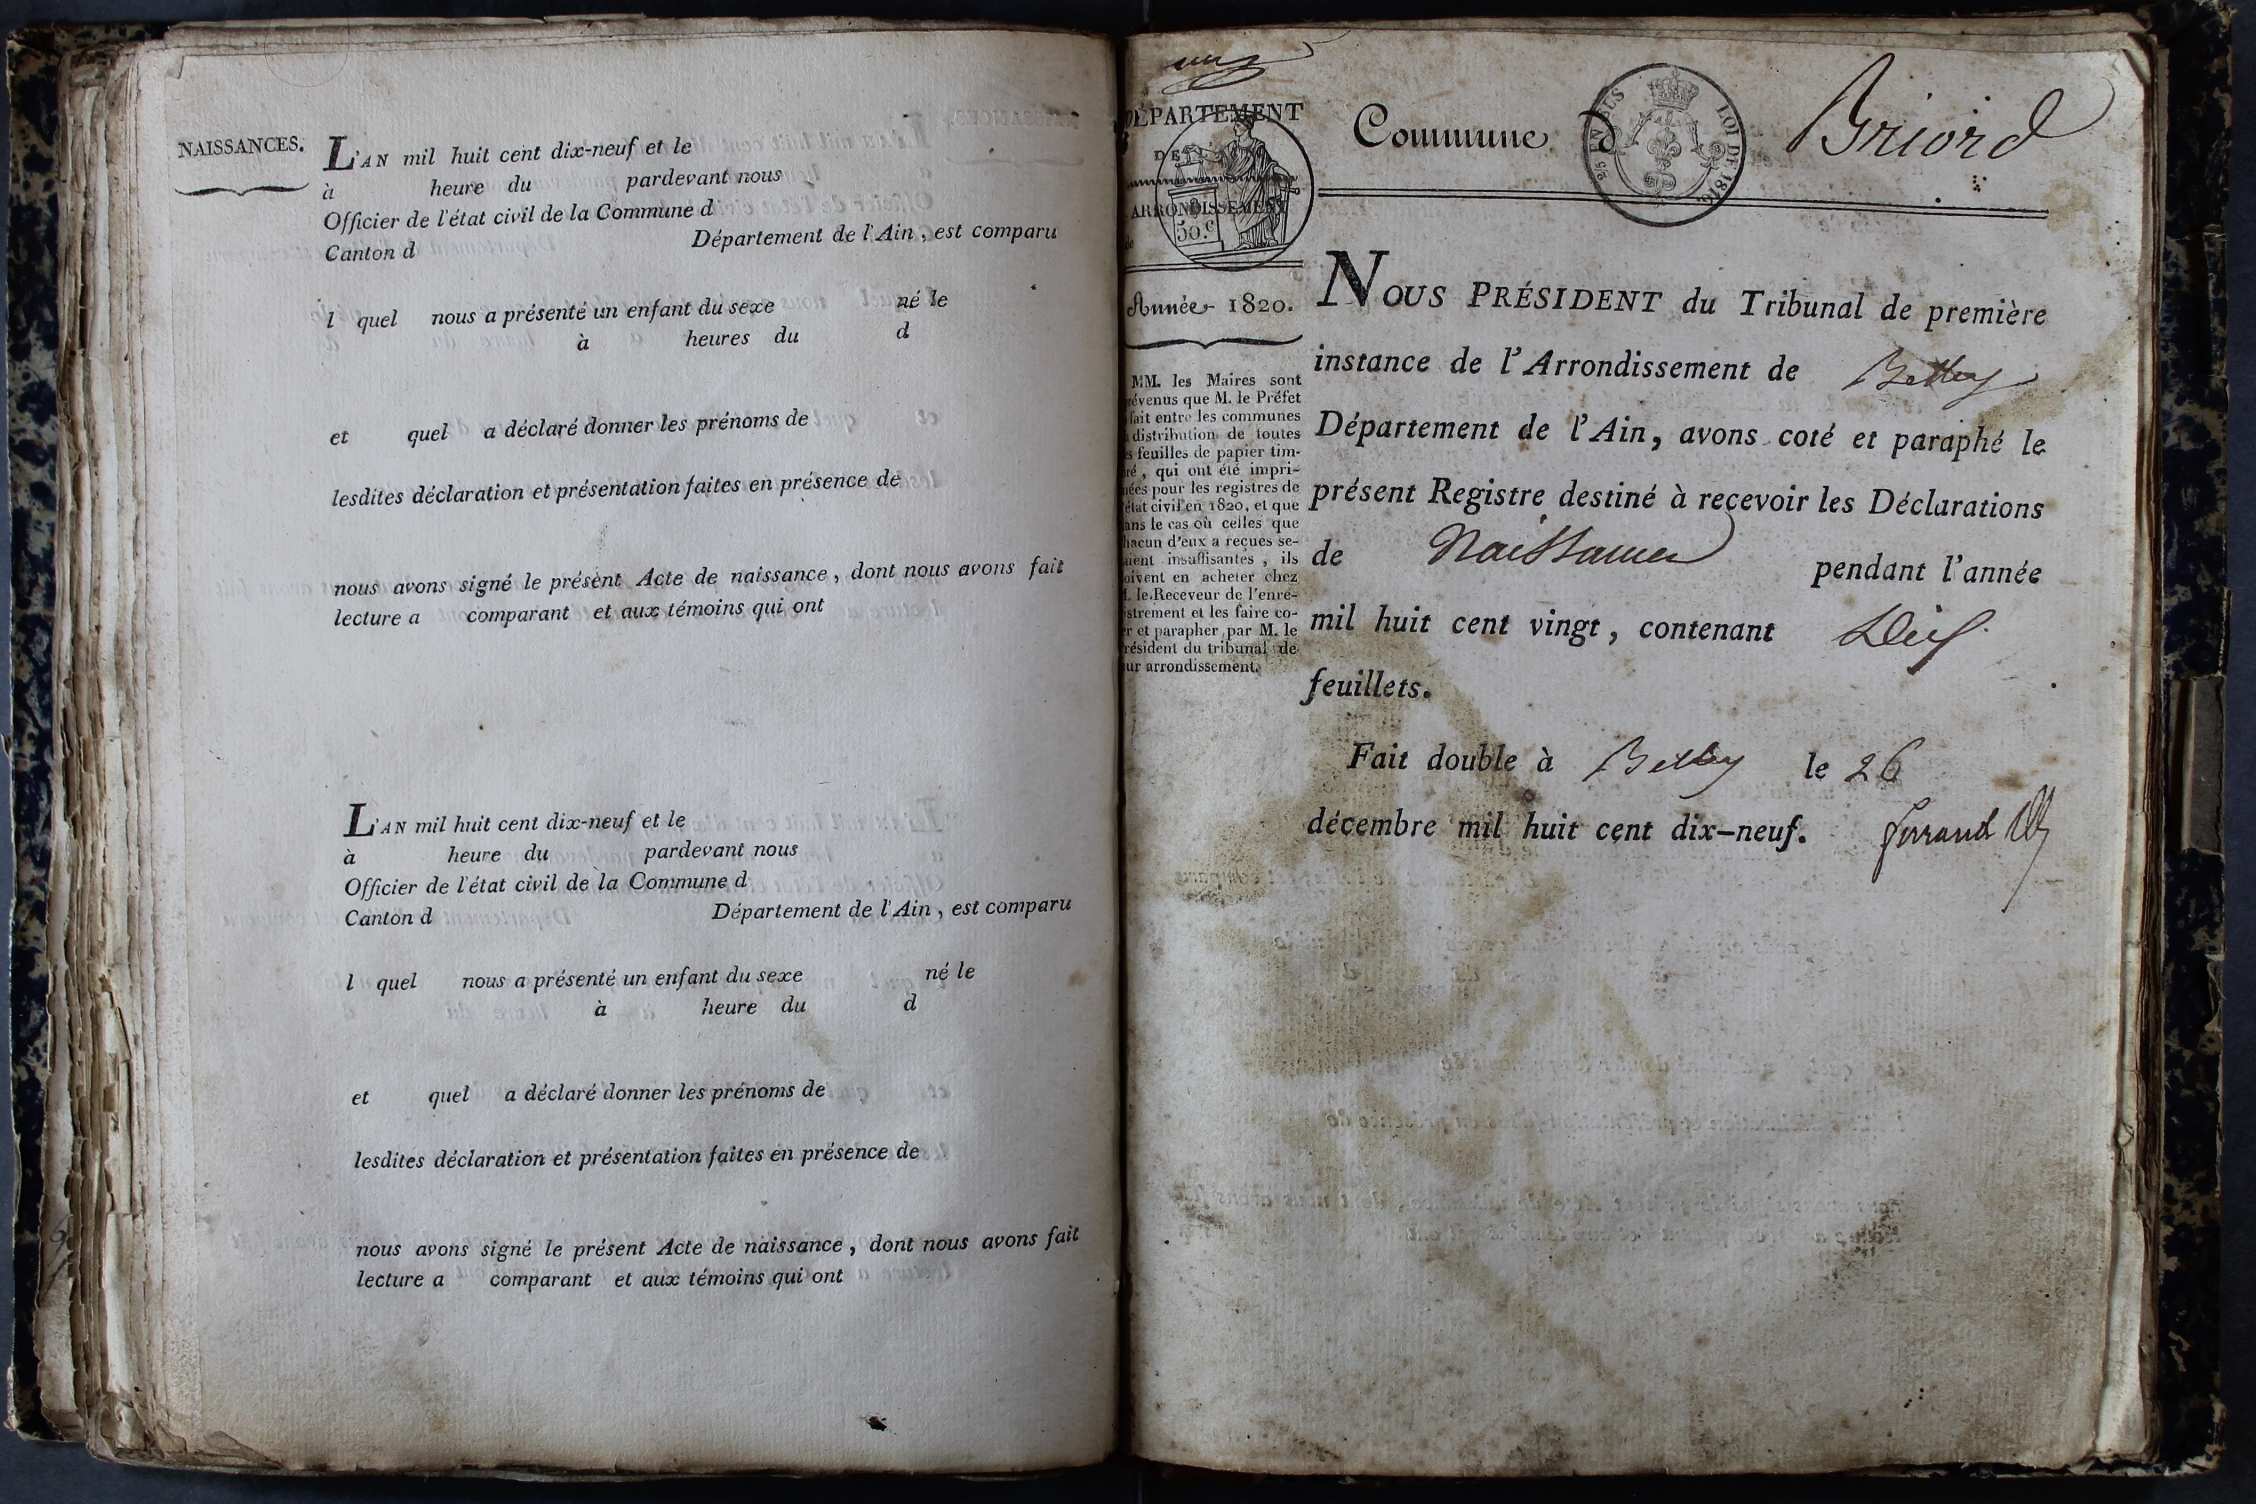 NAISSANCES.
L'AN mil huit cent dix-neuf et le
à heure du pardevant nous
Officier de l'état civil de la Commune d
Canton d Département de l'Ain, est comparu
l quel nous a présenté un enfant du sexe né le
à heures du d
et quel a déclaré donner les prénoms de
lesdites déclaration et présentation faites en présence de
nous avons signé le présent Acte de naissance, dont nous avons fait
lecture a comparant et aux témoins qui ont
L'AN mil huit cent dix-neuf et le
à heure du pardevant nous
Officier de l'état civil de la Commune d
Canton d Département de l'Ain, est comparu
l quel nous a présenté un enfant du sexe né le
à heure du d
et quel a déclaré donner les prénoms de
lesdites déclaration et présentation faites en présence de
nous avons signé le présent Acte de naissance, dont nous avons fait
lecture a comparant et aux témoins qui ont
DÉPARTEMENT
DE
ARRONDISSEMENT
de
50.c
Année 1820.
MM. les Maires sont
révenus que M. le Préfet
fait entre les communes
distribution de toutes
s feuilles de papier tim-
ré, qui ont été impri-
ées pour les registres de
état civil en 1820, et que
ans le cas où celles que
hacun d'eux a reçues se-
aient insuffisantes, ils
oivent en acheter chez
M. le Receveur de l'enre-
istrement et les faire co-
er et parapher par M. le
résident du tribunal de
ur arrondissement.
Commune d Briord
EN SUS
LOI DE 1816
NOUS PRÉSIDENT du Tribunal de première
instance de l'Arrondissement de Belley
Département de l'Ain, avons coté et paraphé le
présent Registre destiné à recevoir les Déclarations
de Naissances pendant l'année
mil huit cent vingt, contenant Dix
feuillets.
Fait double à Belley le 26
décembre mil huit cent dix-neuf. ferrand